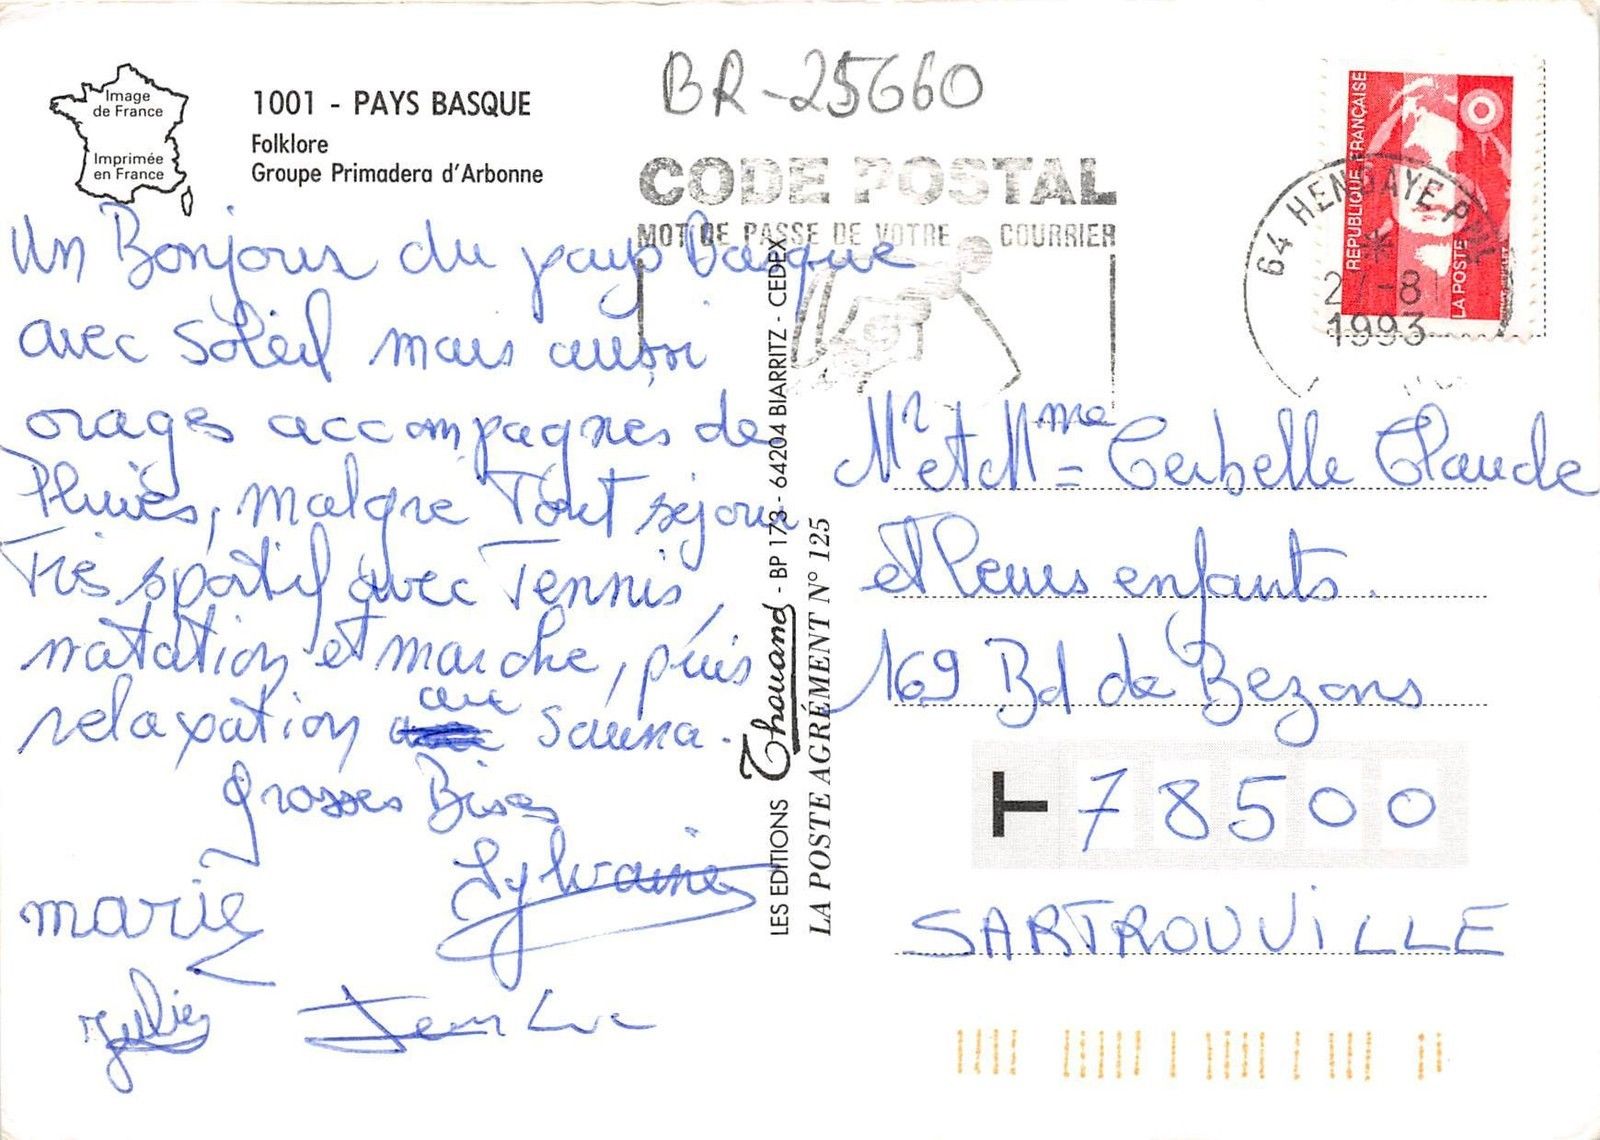 Image
de France
Imprimée
en France
1001 - PAYS BASQUE
Folklore
Groupe Primadera d'Arbonne
BR-25660
CODE POSTAL
MOT DE PASSE DE VOTRE COURRIER
REPUBLIQUE FRANÇAISE
LA POSTE
64 HENDAYE
1993
Un Bonjour du pays Basque
avec soleil mais aussi
orages accompagnés de
Pluies, malgré Tout séjour
Très sportif avec Tennis,
natation et marche, puis
relaxation au sauna.
grosses Bises
Sylvaine
marie
Julien
Jean Luc
LES EDITIONS Thouand - BP 173 - 64204 BIARRITZ - CEDEX
LA POSTE AGRÉMENT N° 125
Mr et Mme = Cerbelle Claude
et leurs enfants.
169 Bd de Bezons
78500
SARTROUVILLE